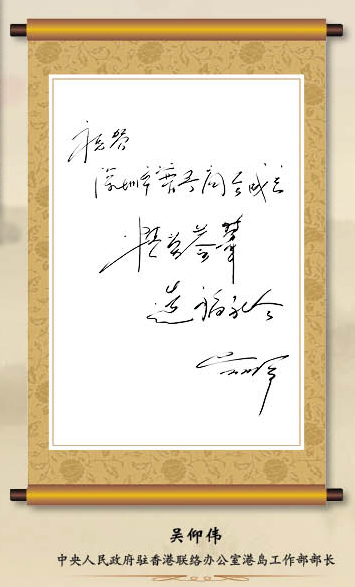 祝贺
深圳市普宁商会成立
造福社会
吴仰伟
中央人民政府驻香港联络办公室港岛工作部部长